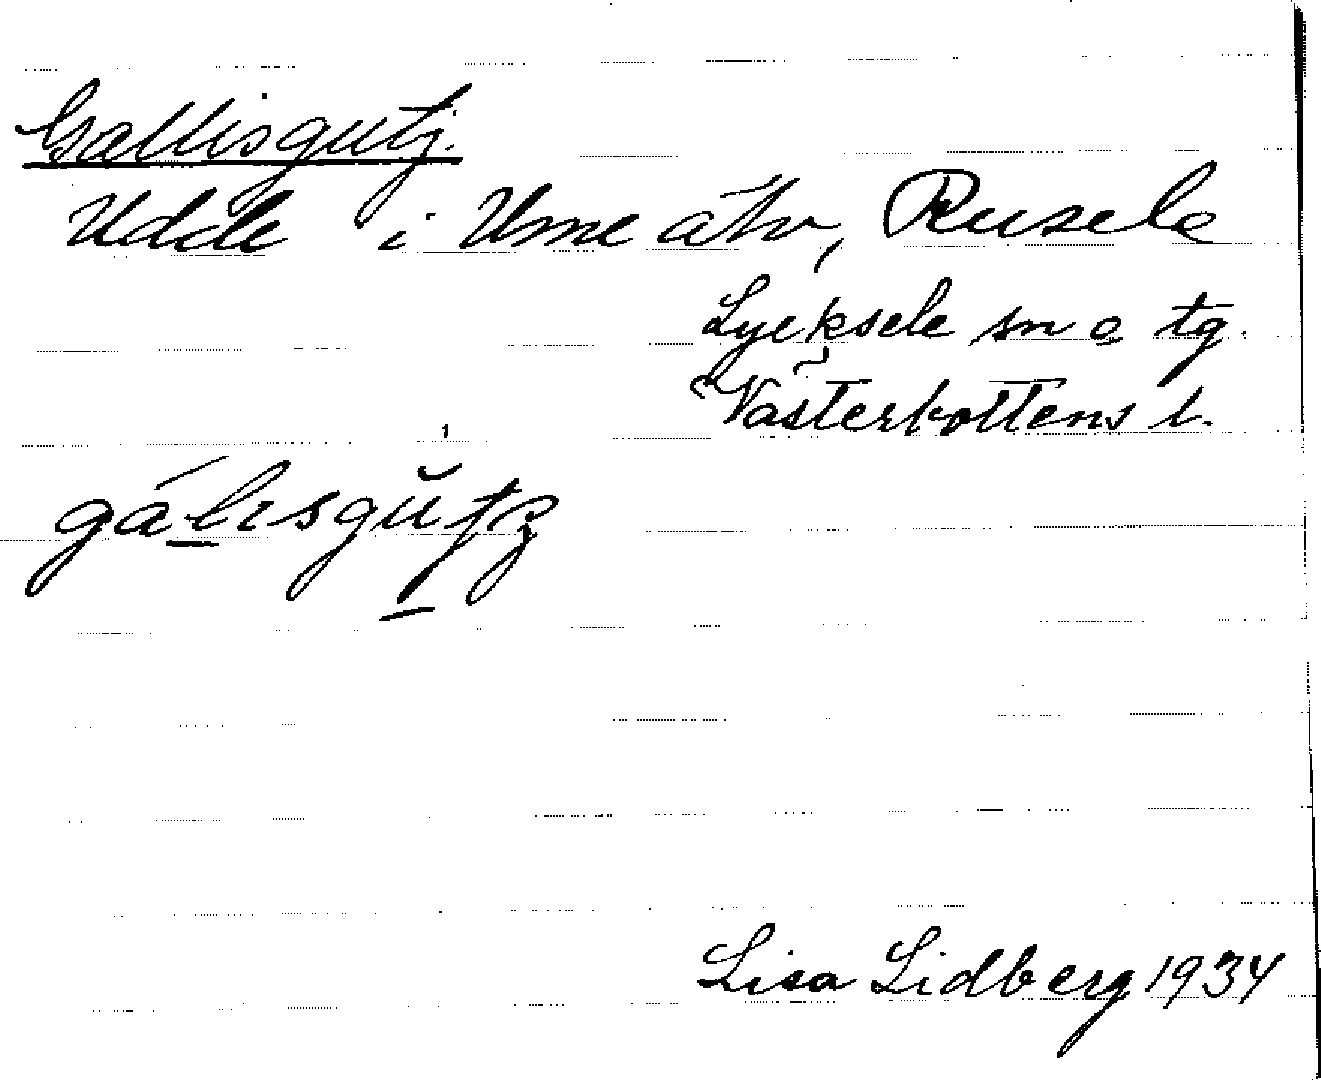 Gallisgutj.
Udde i Ume älv, Rusele
Lycksele sn o tg.
Västerbottens l.
Lisa Lidberg 1934